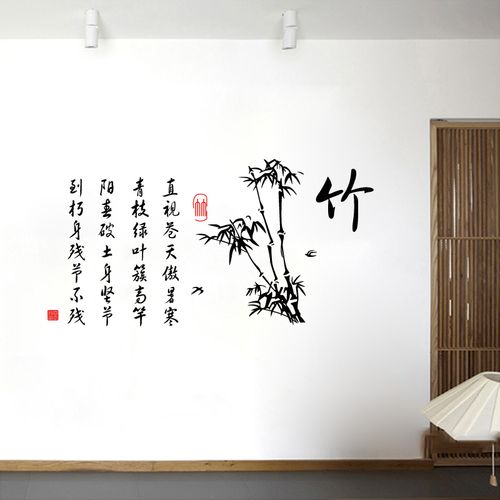 竹
直视苍天傲暑寒
青枝绿叶簇高竿
阳春破土身坚节
到朽身残节不残